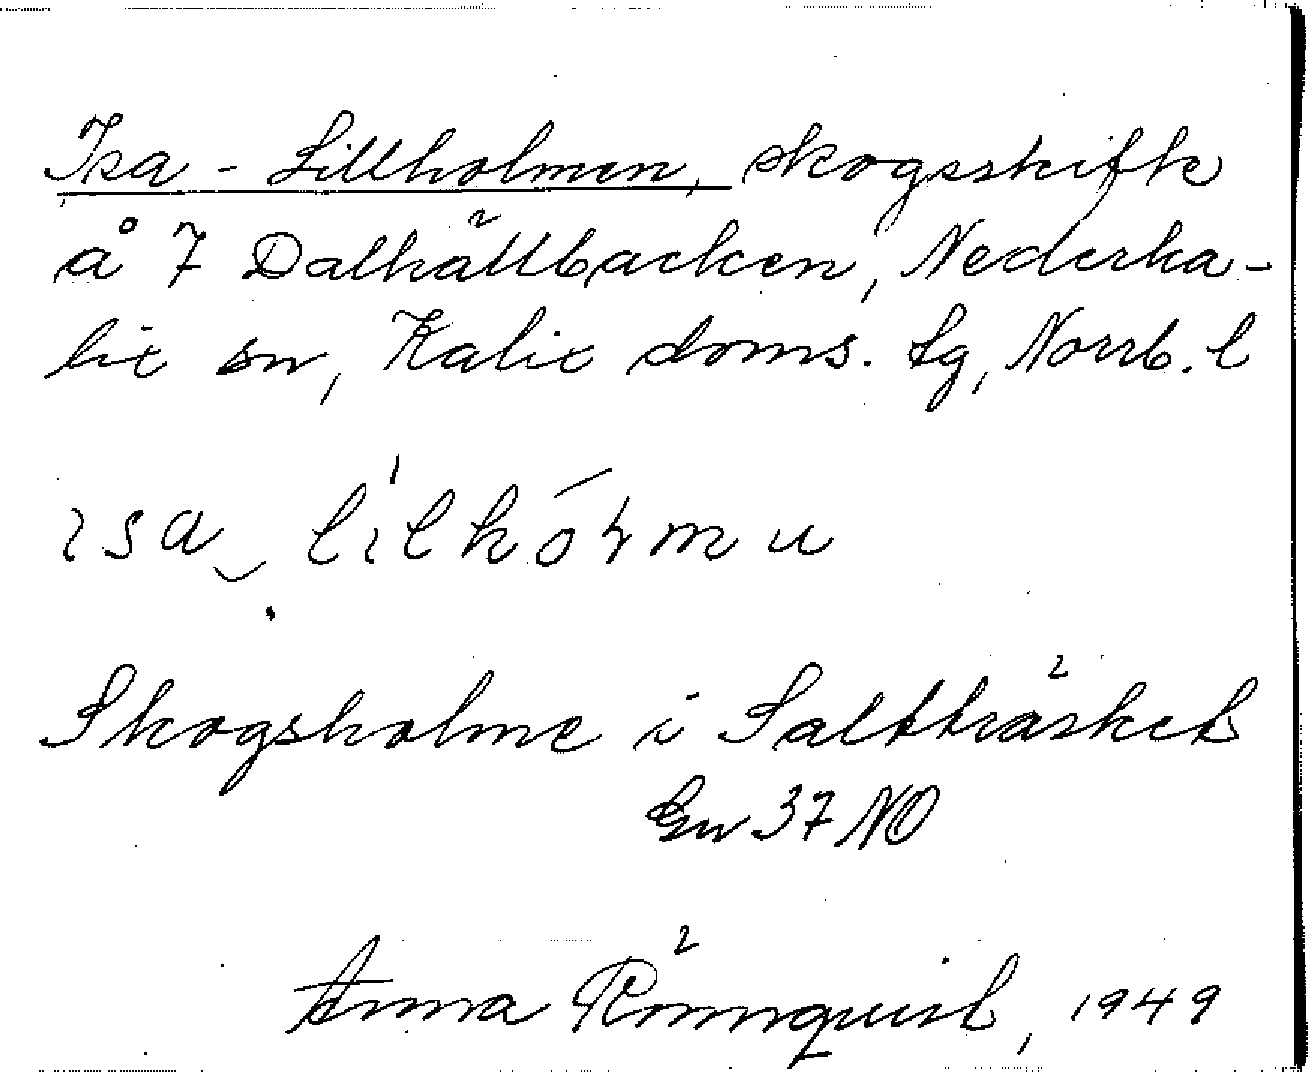 Isa - Lillholmen, skogsskifte
å 7 Dalhällbacken, Nederka-
lix sn, Kalix doms. tg, Norrb. l
isa lilhólmu
Skogsholme i Saltträsket
Gw 37 NO
Anna Rönnquist, 1949